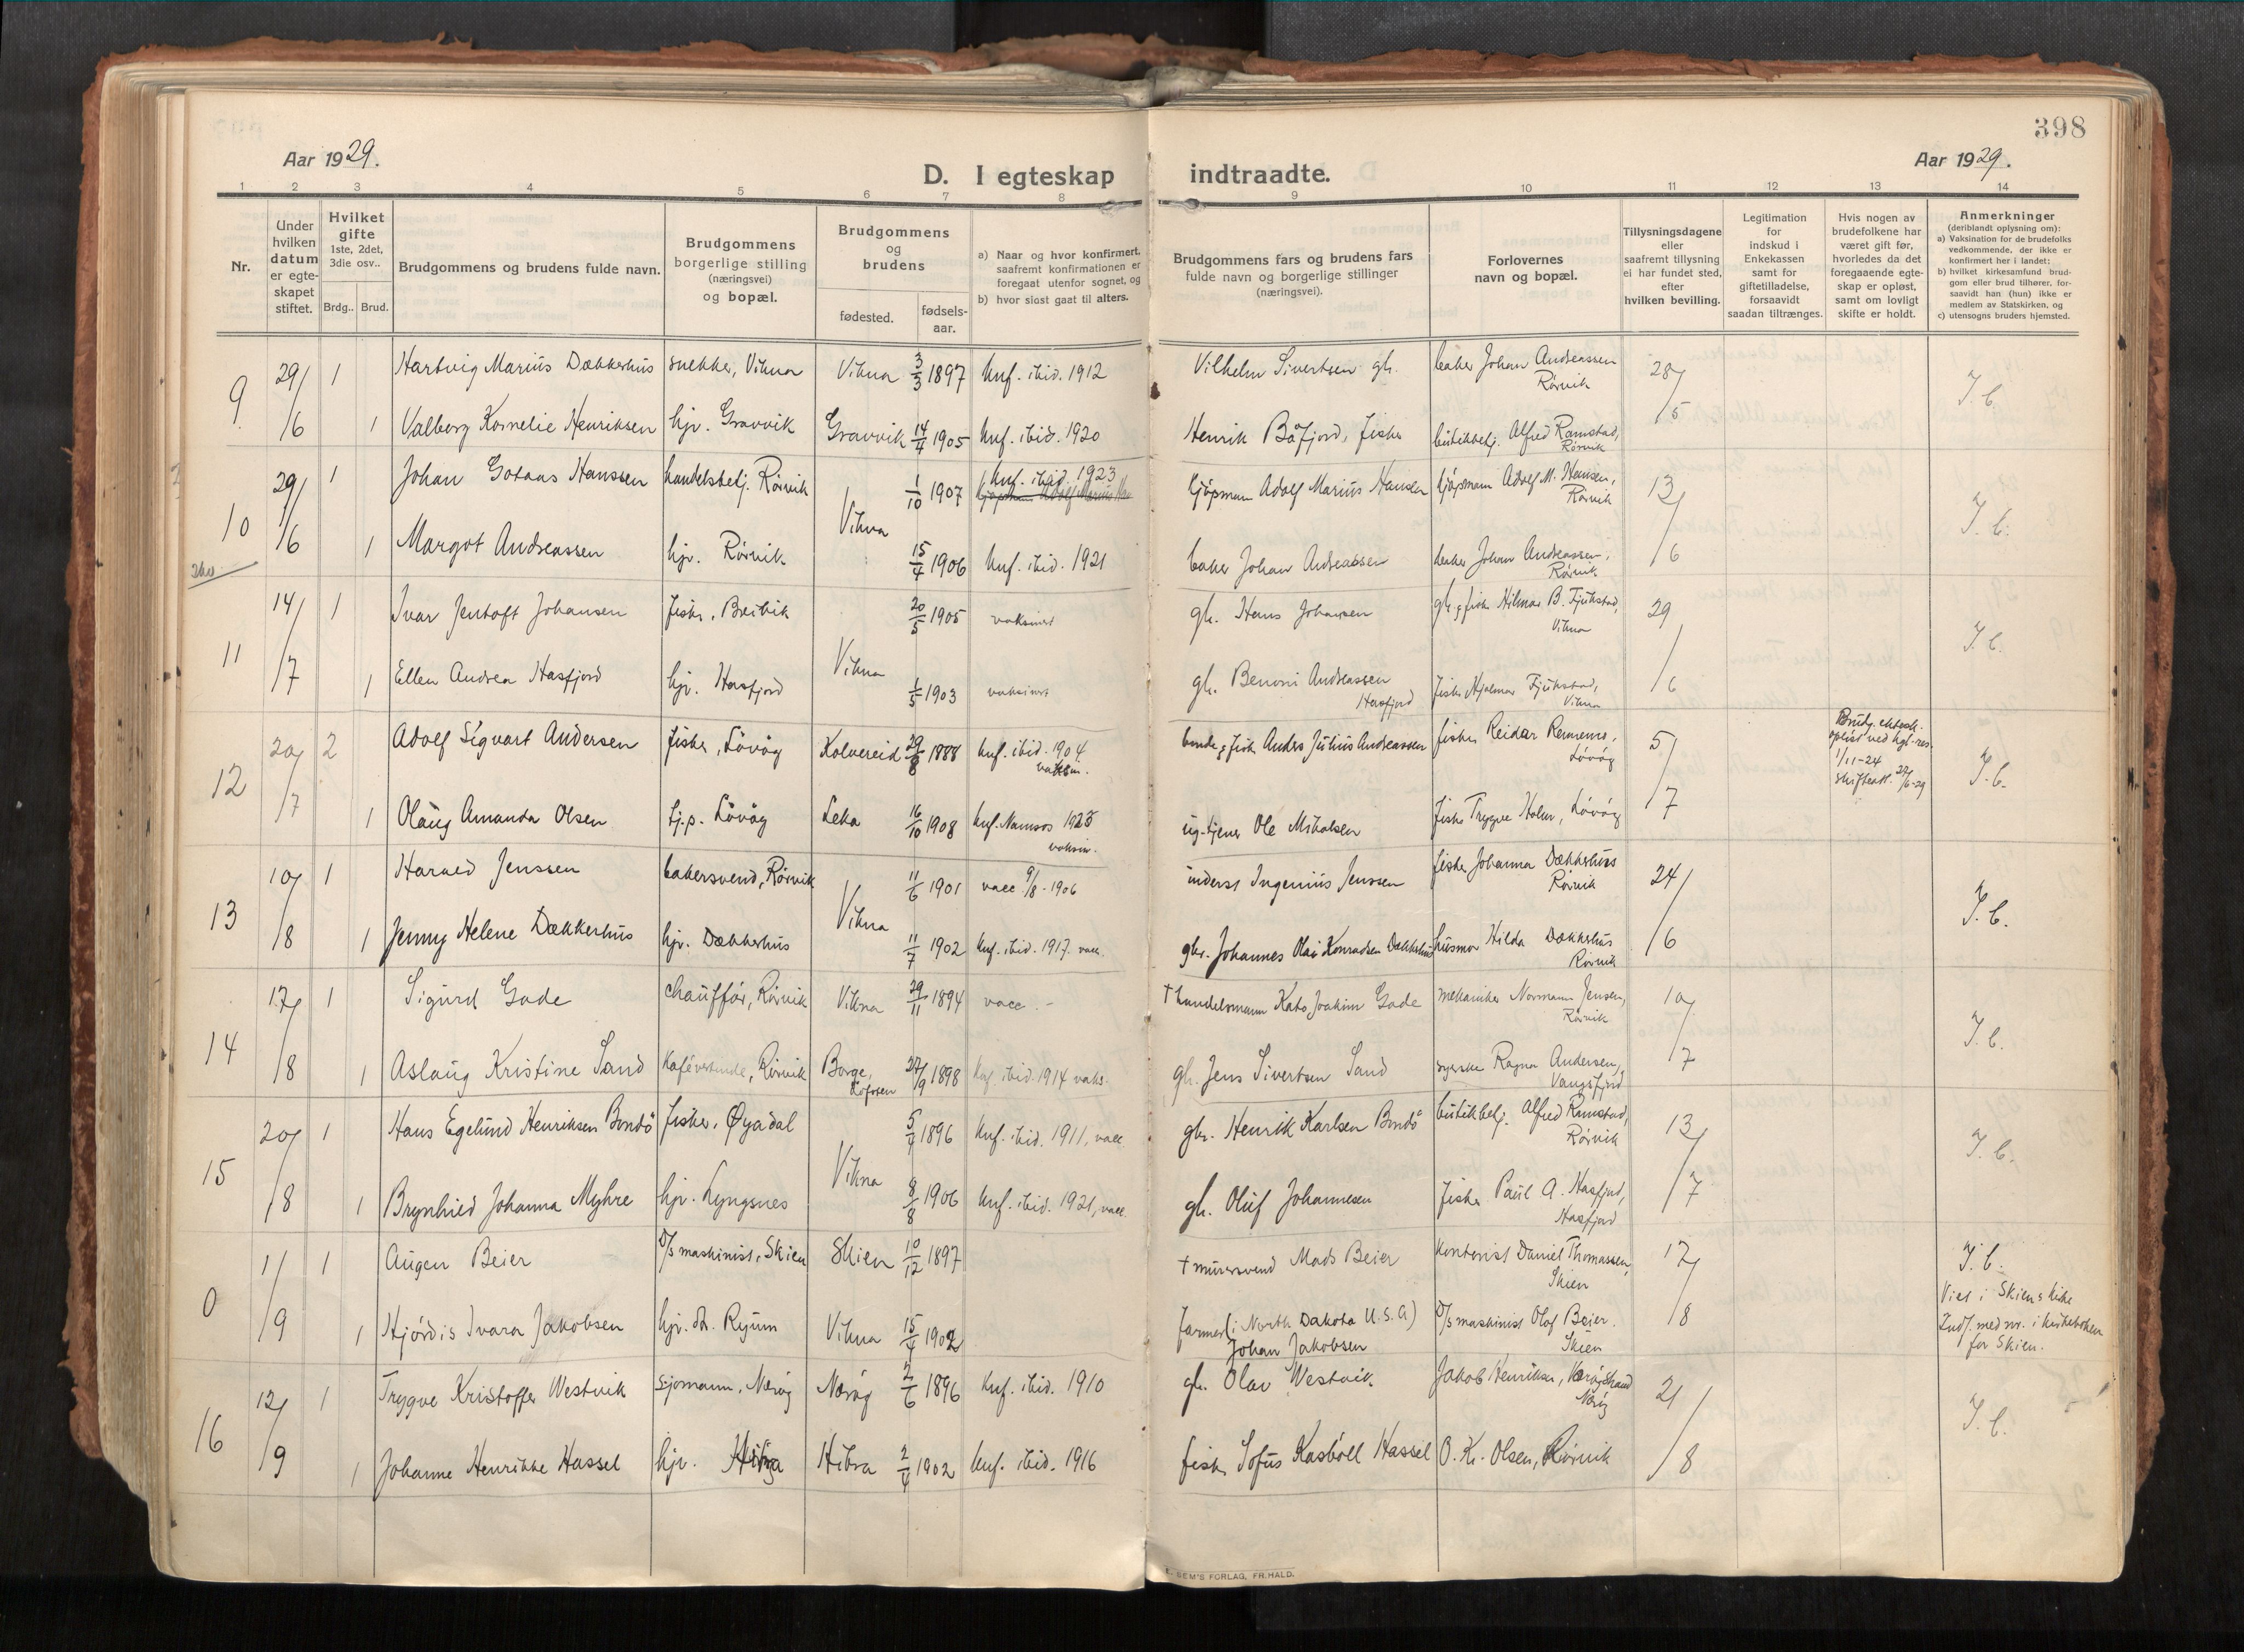 398
Aar 1929.
Aar 1929.
D. I egteskap indtraadte.
1 2 3 4 5 6 7 8 9 10 11 12 13 14
Nr.
Under
hvilken
datum
er egte-
skapet
stiftet.
Hvilket
gifte
1ste, 2det,
3die osv..
Brdg.. Brud.
Brudgommens og brudens fulde navn.
Brudgommens
borgerlige stilling
(næringsvei)
og bopæl.
Brudgommens
og
brudens
fødested.
fødsels-
aar.
a) Naar og hvor konfirmert,
saafremt konfirmationen er
foregaat utenfor sognet, og
b) hvor sidst gaat til alters.
Brudgommens fars og brudens fars
fulde navn og borgerlige stillinger
(næringsvei).
Forlovernes
navn og bopæl.
Tillysningsdagene
eller
saafremt tillysning
ei har fundet sted,
efter
hvilken bevilling.
Legitimation
for
indskud i
Enkekassen
samt for
giftetilladelse,
forsaavidt
saadan tiltrænges.
Hvis nogen av
brudefolkene har
været gift før,
hvorledes da det
foregaaende egte-
skap er opløst,
samt om lovligt
skifte er holdt.
Anmerkninger
(deriblandt oplysning om):
a) Vaksination for de brudefolks
vedkommende, der ikke er
konfirmert her i landet;
b) hvilket kirkesamfund brud-
gom eller brud tilhører, for-
saavidt han (hun) ikke er
medlem av Statskirken, og
c) utensogns bruders hjemsted.
9 29/6 1 Hartvig Marius Dækkerhus snekker, Vikna Vikna 3/3 1897 Knf. ibid. 1912 Vilhelm Sivertsen gh. baker Johan Andreassen
Rørvik 28/5 I.b.
1 Valborg Kornelie Henriksen hjv. Gravvik Gravvik 14/4 1905 knf. ibid. 1920 Henrik Båfjord, fisker butikkbetj. Alfred Ramstad,
Rørvik
10 29/6 1 Johan Gotaas Hanssen handelsbetj. Rørvik Vikna 1/10 1907 knf. ibid. 1923 kjøpmann Adolf Marius Hansen kjøpmann Adolf M. Hansen,
Rørvik 13/6 I.b.
1 Margot Andreassen hjv. Rørvik 15/4 1906 knf. ibid. 1921 baker Johan Andreassen baker Johan Andreassen,
Rørvik
11 14/7 1 Ivar Jentoft Johansen fisker, Breivik Vikna 20/5 1905 vaksinert gh. Hans Johansen gh. & fisker Hilmar B. Fjukstad,
Vikna 29/6 I.b.
1 Ellen Andrea Hasfjord hjv. Hasfjord 1/5 1903 vaksinert gh. Benoni Andreassen
Hasfjord fisker Hjalmar Fjukstad,
Vikna
12 20/7 2 Adolf Sigvart Andersen fisker, Løvøg Kolvereid 1888 knf. ibid. 1904
vaksin. bonde & fisker Anders Julius Andreassen fisker Reidar Rennemo,
Løvøg 5/7 Brudg. ektesk.
opløst ved kgl. res.
1/11-24
skifteatt. 27/6-29 I.b.
1 Olaug Amanda Olsen tj.p. Løvøg Leka 16/10 1908 knf. Namsos 1923
vaksin. Ole Mikalsen fisker Trygve Holm, Løvøg
13 10/8 1 Harald Jenssen bakersvend, Rørvik Vikna 11/6 1901 vacc 9/8-1906 inderst Ingenius Jenssen fisker Johanna Dækkerhus
Rørvik 24/6 I.b.
1 Jenny Helene Dækkerhus hjv. Dækkerhus 11/7 1902 knf. ibid. 1917. vacc. gbr. Johannes Olai Konradsen Dækkerhus husmor Hilda Dækkerhus
Rørvik
14 17/8 1 Sigurd Gade chauffør, Rørvik Vikna 29/11 1894 vacc. - † handelsmann Kato Joakim Gade mekaniker Normann Jensen,
Rørvik 10/7 I.b.
1 Aslaug Kristine Sand Kafévertinde, Rørvik Borge,
Lofoten 27/9 1898 knf. ibid. 1914 vaks. gh. Jens Sivertsen Sand syerske Ragna Andersen,
Vangsfjord
15 20/8 1 Hans Egelund Henriksen Bondø fisker, Øyadal Vikna 1896 knf. ibid. 1911, vacc. gbr. Henrik Karlsen Bondø butikkbetj. Alfred Ramstad,
Rørvik 13/7 I.b.
1 Brynhild Johanna Myhre hjv. Lyngsnes 8/8 1906 knf. ibid. 1921, vacc. gh. Oluf Johannesen fisker Paul A. Hasfjord,
Hasfjord
0 1/9 1 Augen Beier D/s maskinist, Skien Skien 10/12 1897 † murersvend Mads Beier Kontorist Daniel Thomassen,
Skien 17/8 I.b.
Viet i Skiens kirke
Indf. med nr. i kirkeboken
for Skien.
1 Hjørdis Ivara Jakobsen hjv. Ryum Vikna 15/4 1902 farmer (i North Dakota U.S.A)
Johan Jakobsen D/s maskinist Olaf Beier.
Skien
16 12/9 1 Trygve Kristoffer Westvik sjømann, Nærøy Nærøy 2/6 1896 knf. ibid. 1910 gh. Olav Westvik Jakob Henriksen, Nærøystrand
Nærøy 21/8 I.b.
1 Johanne Henrikke Hassel hjv. Hitra Hitra 2/4 1902 knf. ibid. 1916 fisker Sofus Kasbøll Hassel O. K. Olsen, Rørvik
E. SEM'S FORLAG, FR.HALD.